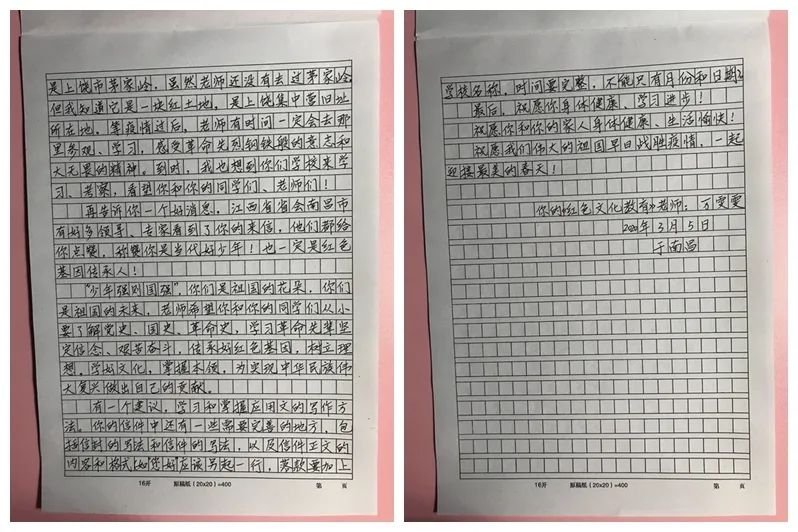 是上饶市茅家岭，虽然老师还没有去过茅家岭，
但我知道它是一块红土地，是上饶集中营旧址
所在地，等疫情过后，老师有时间一定会去那
里参观、学习，感受革命先烈钢铁般的意志和
大无畏的精神。到时，我也想到你们学校来学
习、考察，看望你和你的同学们、老师们！
再告诉你一个好消息，江西省省会南昌市
有好多领导、专家看到了你的来信，他们都给
你点赞，称赞你是当代好少年！也一定是红色
基因传承人！
“少年强则国强”，你们是祖国的花朵，你们
是祖国的未来，老师希望你和你的同学们从小
要了解党史、国史、革命史，学习革命先辈坚
定信念、艰苦奋斗，传承好红色基因，树立理
想。学好文化，掌握本领，为实现中华民族伟
大复兴做出自己的贡献。
有一个建议，学习和掌握应用文的写作方
法。你的信件中还有一些需要完善的地方，包
括信封的写法和信件的写法，以及信件正文的
内容和格式(如您好应该另起一行，落款要加上
16开 原稿纸（20x20）=400 第 页
学校名称，时间要完整，不能只有月份和日期)。
最后，祝愿你身体健康、学习进步！
祝愿你和你的家人身体健康、生活愉快！
祝愿我们伟大的祖国早日战胜疫情，一起
迎接最美的春天！
你的《红色文化教育》老师：万雯雯
年3月5日
于南昌
16开 原稿纸（20x20）=400 第 页